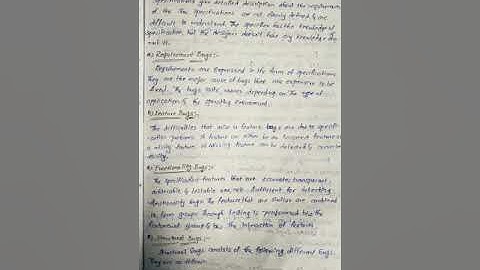 specifications give detailed description about the requirements
of the the specifications are not clearly defined & are
difficult to understand. The specifier has the knowledge of
specification, but the designer doesn't have any knowledge
a) Requirement Bugs:-
Requirements are expressed in the form of specifications
They are the major cause of bugs that are expensive to be
fixed. The bugs rate varies depending on the type of
application & the operating environment.
b) Feature Bugs:-
The difficulties that arise in feature bugs are due to specifi-
cation problems. A feature can either be an
a missing feature. A missing feature can be detected &
easily.
c) Functionality Bugs:-
The specification features that are accurate, transparent,
& testable are not sufficient for detecting
functionality bugs. The features that are similar are combined
to form groups through testing is performed b/w the
& b/w the interaction of features.
Structural Bugs:-
Structural bugs consists of the following different bugs.
They are as follows